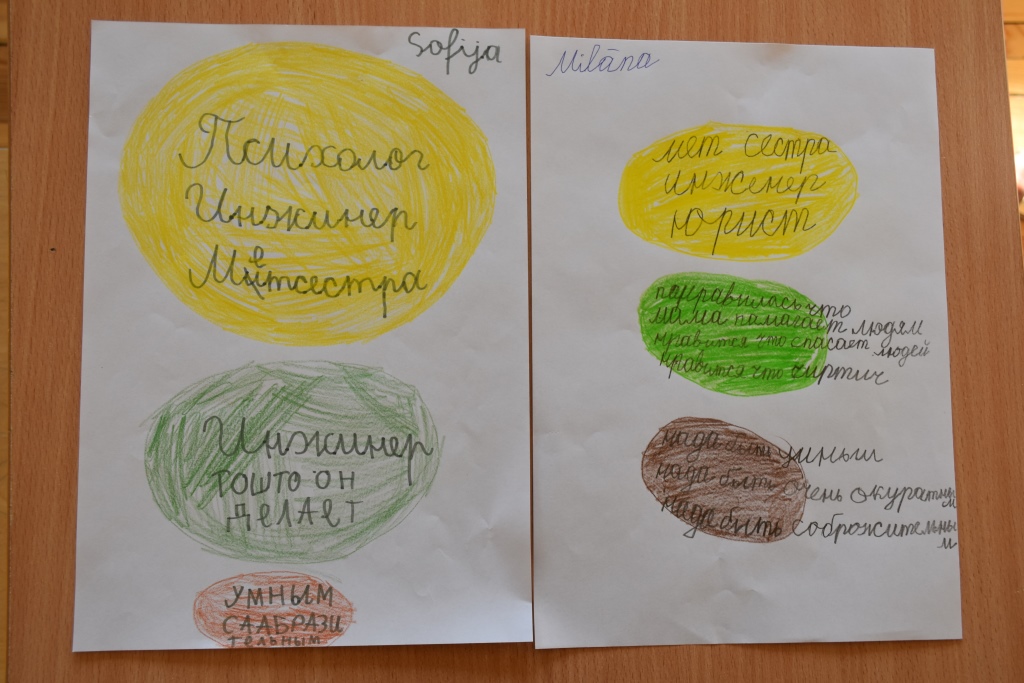 Sofija
Психолог
Инжинер
Метсестра
Инжинер
тошто он
делает
умным
саабрази
тельным
Milāna
мет сестра
инженер
юрист
панравилась что
мама памагает людям
нравится что спасает людей
нравится что чиртит
нада быть умным
нада быть очень окуратным
нада быть соброжительным